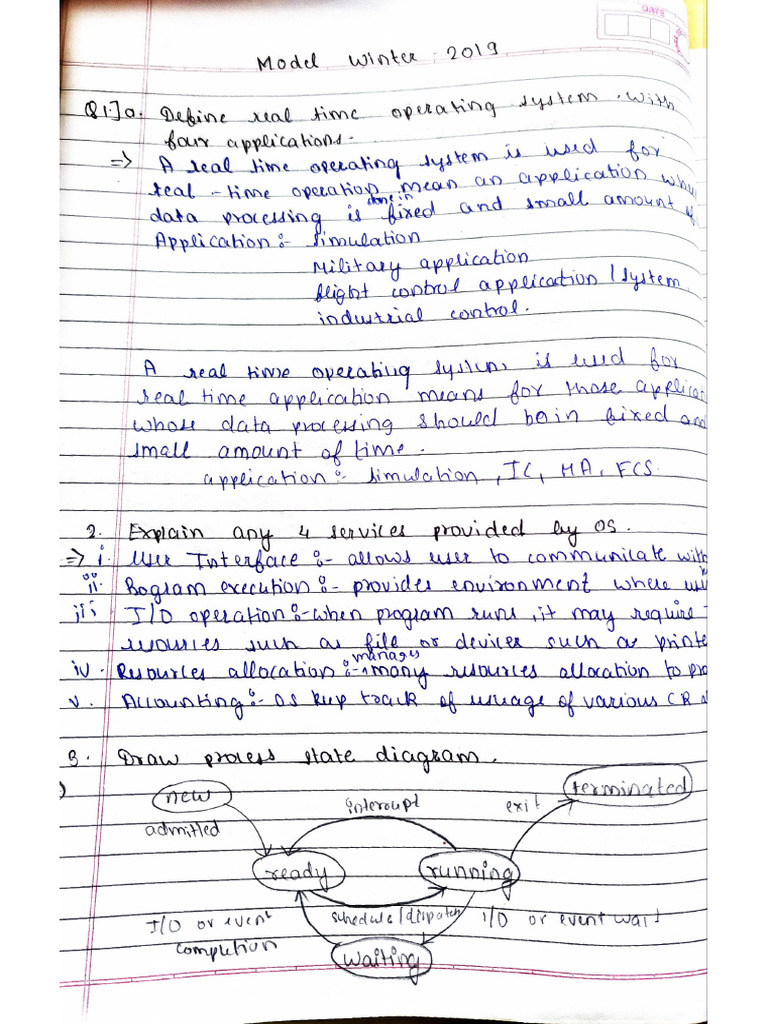 DATE
Model Winter 2019
Q1.] a. Define real time operating system with
four applications.
=> A real time operating system is used for
real-time operation mean an application whe
data processing is done in fixed and small amount of
Application :- Simulation
Military application
flight control application / system
industrial control.
A real time operating system is used for
real time application means for those applicat
whose data processing should be in fixed and
small amount of time.
application :- simulation, IC, MA, FCS.
2. Explain any 4 services provided by OS.
=> i. User Interface :- allows user to communicate with
ii. Program execution :- provides environment where use
iii I/O operation :- when program runs, it may require
resources such as file or devices such as printe
iv. Resources allocation :- manages many resources allocation to pro
v. Accounting :- OS keep track of usuage of various CR
3. Draw process state diagram.
new interoupt exit terminated
admitted
ready running
I/O or event schedule/dispatch I/O or event wait
completion
waiting